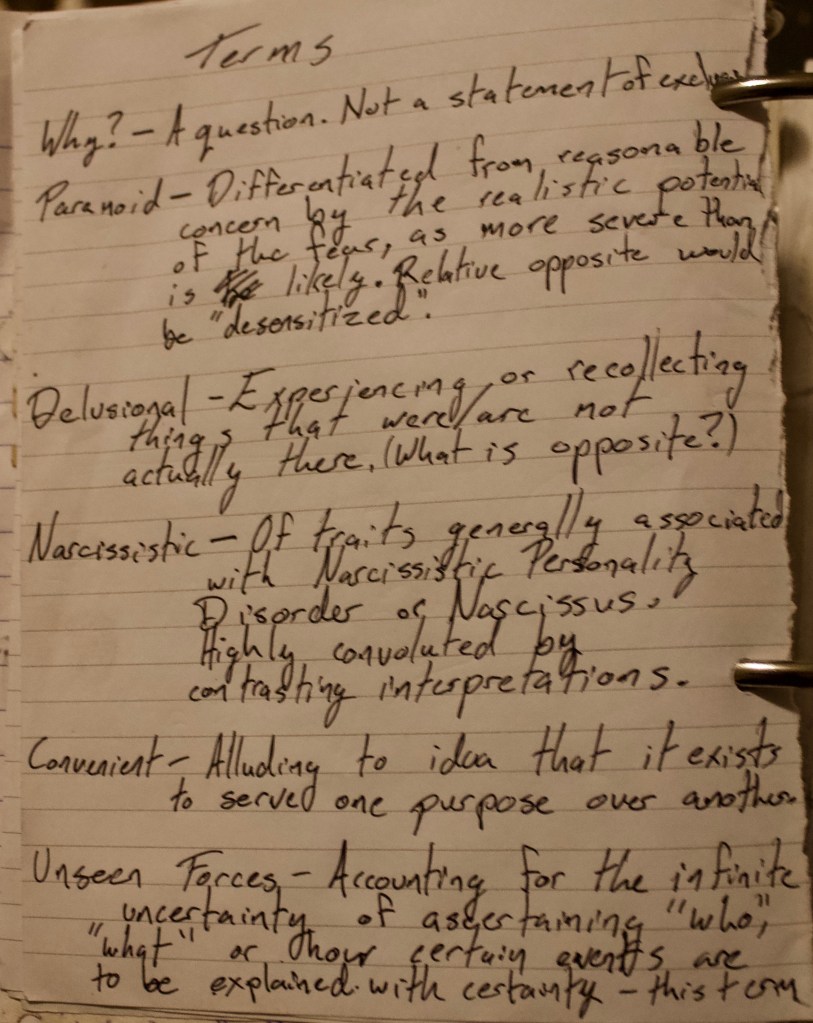 Terms
Why? - A question. Not a statement of
Paranoid - Differentiated from reasonable
concern by the realistic potential
of the fear, as more severe than
is likely. Relative opposite would
be "desensitized".
Delusional - Experiencing, or recollecting
things that were/are not
actually there. (What is opposite?)
Narcissistic - Of traits generally associated
with Narcissistic Personality
Disorder or Narcissus.
Highly convoluted by
contrasting interpretations.
Convenient - Alluding to idea that it exists
to served one purpose over another.
Unseen Forces - Accounting for the infinite
uncertainty of ascertaining "who,"
"what" or how certain events are
to be explained with certainty - this term